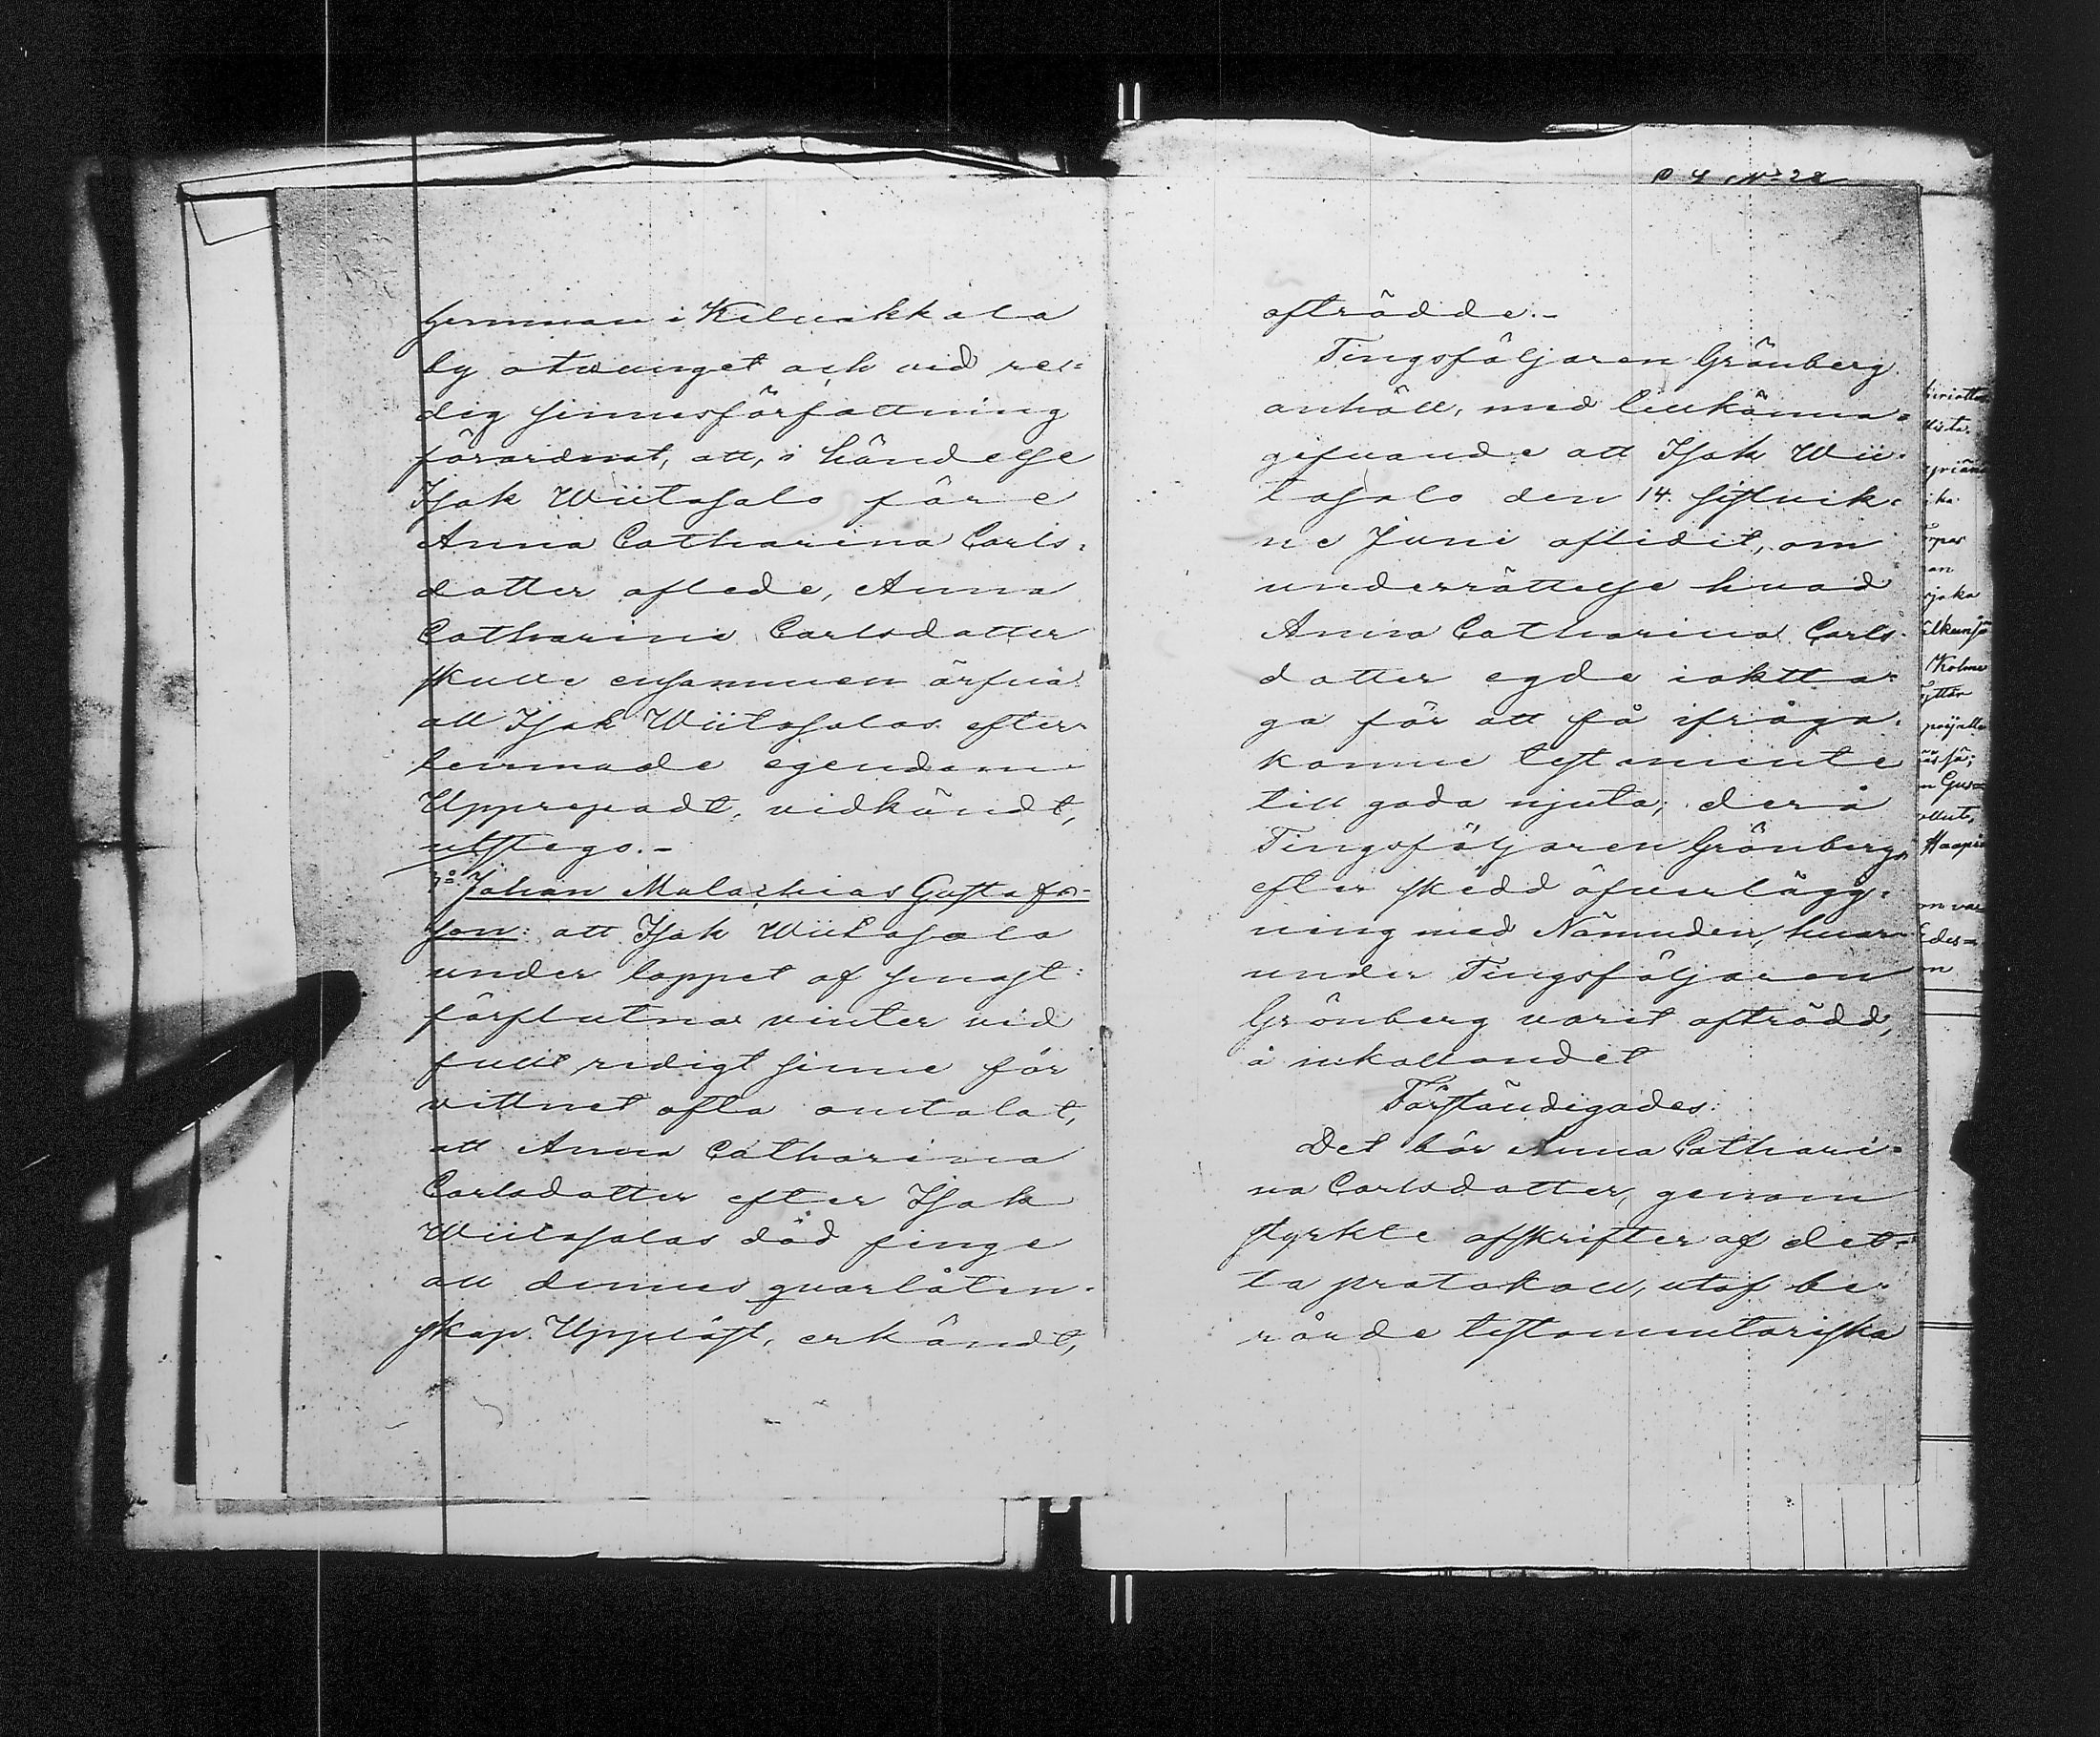 hemman i Keluakkala
by otvunget och vid re=
dig sinnesförfattning
förordnat, att, i händelse
Isak Wiitasalo före
Anna Catharina Carls=
dotter aflede, Anna
Catharina Carlsdotter
skulle ensammen ärfva
all Isak Wiitasalos efter=
lemnade egendom
Upprepadt, vidkändt,
utstego.-
3o Johan Malachias Gustafs=
son: att Isak Wiitasalo
under loppet af senast=
förflutna vinter vid
fullt redigt sinne för
vittnet ofta omtalat,
att Anna Catharina
Carlsdotter efter Isak
Wiitasalos död finge
all dennes qvarlåten=
skap. Uppläst, erkändt,
P 4 No 28
afträdde.-
Tingsföljaren Grönberg
anhöll, med tillkänna=
gifvande att Isak Wii=
tasalo den 14. sistvik=
ne Juni aflidit, om
underrättelse hvad
Anna Catharina Carls=
dotter egde iaktta=
ga för att få ifråga=
komne testamente
till godo njuta; derå
Tingsföljaren Grönberg,
efter skedd öfverlägg=
ning med Nämnden, hvar=
under Tingsföljaren
Grönberg varit afträdd,
å inkallandet
Förständigades:
Det bör Anna Cathari=
na Carlsdotter, genom
styrkte afskrifter af det=
ta protokoll, utaf be=
rörde testamentariska